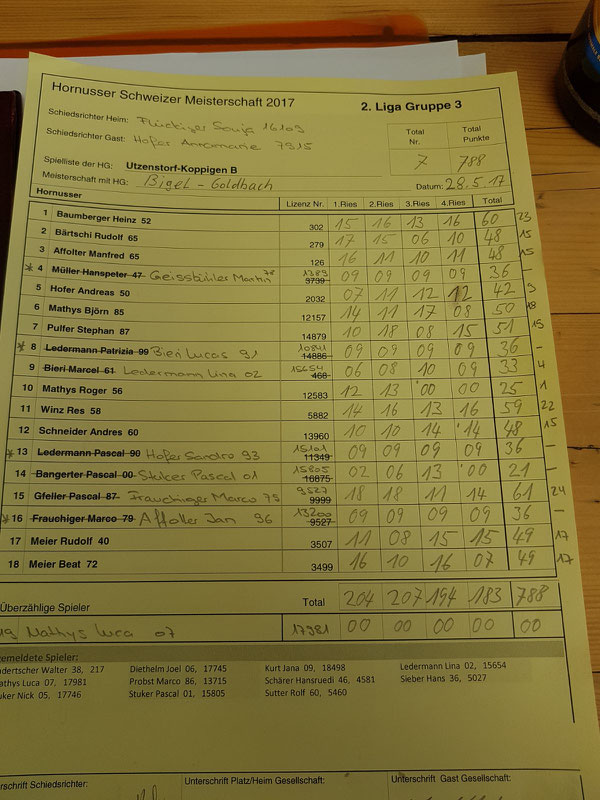 Hornusser Schweizer Meisterschaft 2017 2. Liga Gruppe 3
Schiedsrichter Heim: Flückiger Sonja 16103
Schiedsrichter Gast: Hofer Annemarie 7915
Total Nr. Total Punkte
7 788
Spielliste der HG: Utzenstorf-Koppigen B
Meisterschaft mit HG: Bigel - Goldbach Datum: 28.5.17
Hornusser Lizenz Nr. 1.Ries 2.Ries 3.Ries 4.Ries Total
1 Baumberger Heinz 52 302 15 16 13 16 60 23
2 Bärtschi Rudolf 65 279 17 15 06 10 48 15
3 Affolter Manfred 65 126 16 11 10 11 48 15
* 4 Müller Hanspeter 47 Geissbühler Martin 78 1389 3739 09 09 09 09 36 –
5 Hofer Andreas 50 2032 07 11 12 12 42 9
6 Mathys Björn 85 12157 14 11 17 08 50 18
7 Pulfer Stephan 87 14879 10 18 08 15 51 19
* 8 Ledermann Patrizia 99 Bieri Lucas 91 10841 14886 09 09 09 09 36 –
9 Bieri Marcel 61 Ledermann Lina 02 15654 468 06 08 10 09 33 4
10 Mathys Roger 56 12583 12 13 00 00 25 1
11 Winz Res 58 5882 14 16 13 16 59 22
12 Schneider Andres 60 13960 10 10 14 14 48 15
* 13 Ledermann Pascal 90 Hofer Sandro 93 15101 11349 09 09 09 09 36 –
14 Bangerter Pascal 00 Stuker Pascal 01 15805 16875 02 06 13 00 21 –
15 Gfeller Pascal 87 Frauchiger Marco 79 9527 9999 18 18 11 14 61 24
* 16 Frauchiger Marco 79 Affolter Jan 96 13200 9527 09 09 09 09 36 –
17 Meier Rudolf 40 3507 11 08 15 15 49 17
18 Meier Beat 72 3499 16 10 16 07 49 17
Überzählige Spieler Total 204 207 194 183 788
19 Mathys Luca 07 17981 00 00 00 00 00
gemeldete Spieler:
ndertscher Walter 38, 217 Diethelm Joel 06, 17745 Kurt Jana 09, 18498 Ledermann Lina 02, 15654
athys Luca 07, 17981 Probst Marco 86, 13715 Schärer Hansruedi 46, 4581 Sieber Hans 36, 5027
uker Nick 05, 17746 Stuker Pascal 01, 15805 Sutter Rolf 60, 5460
erschrift Schiedsrichter: Unterschrift Platz/Heim Gesellschaft: Unterschrift Gast Gesellschaft: